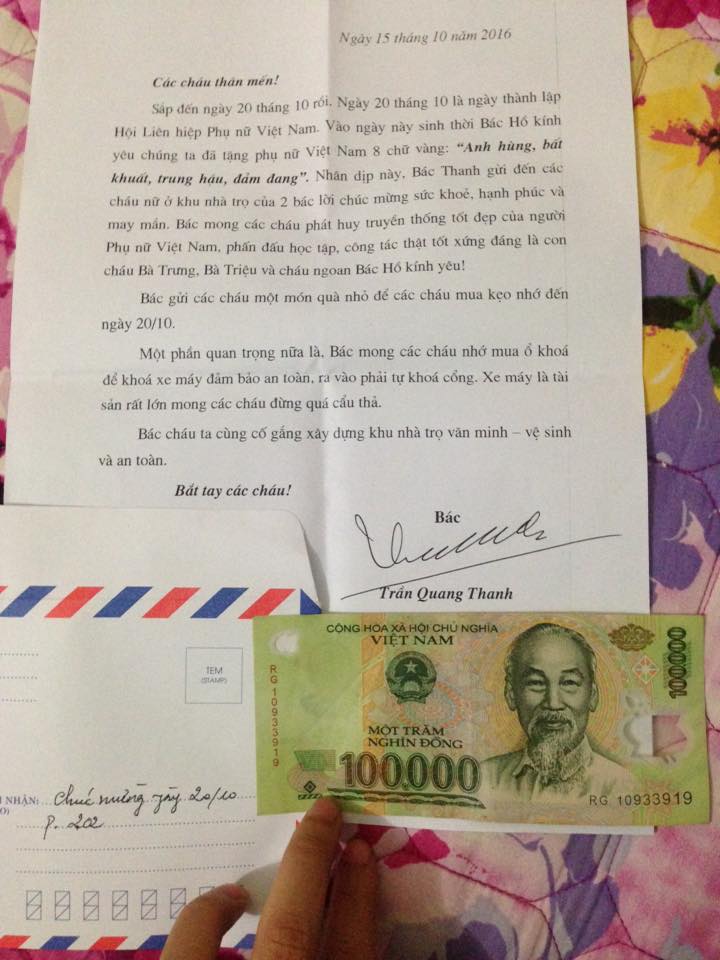 Ngày 15 tháng 10 năm 2016
Các cháu thân mến!
Sắp đến ngày 20 tháng 10 rồi. Ngày 20 tháng 10 là ngày thành lập
Hội Liên hiệp Phụ nữ Việt Nam. Vào ngày này sinh thời Bác Hồ kính
yêu chúng ta đã tặng phụ nữ Việt Nam 8 chữ vàng: “Anh hùng, bất
khuất, trung hậu, đảm đang”. Nhân dịp này, Bác Thanh gửi đến các
cháu nữ ở khu nhà trọ của 2 bác lời chúc mừng sức khoẻ, hạnh phúc và
may mắn. Bác mong các cháu phát huy truyền thống tốt đẹp của người
Phụ nữ Việt Nam, phấn đấu học tập, công tác thật tốt xứng đáng là con
cháu Bà Trưng, Bà Triệu và cháu ngoan Bác Hồ kính yêu!
Bác gửi các cháu một món quà nhỏ để các cháu mua kẹo nhớ đến
ngày 20/10.
Một phần quan trọng nữa là, Bác mong các cháu nhớ mua ổ khoá
để khoá xe máy đảm bảo an toàn, ra vào phải tự khoá cổng. Xe máy là tài
sản rất lớn mong các cháu đừng quá cẩu thả.
Bác cháu ta cùng cố gắng xây dựng khu nhà trọ văn minh – vệ sinh
và an toàn.
Bắt tay các cháu!
Bác
Trần Quang Thanh
CỘNG HÒA XÃ HỘI CHỦ NGHĨA
VIỆT NAM
100.000
RG 10933919
MỘT TRĂM
NGHÌN ĐỒNG
100.000
RG 10933919
TEM
(STAMP)
NHẬN: Chúc mừng ngày 20/10
P. 202